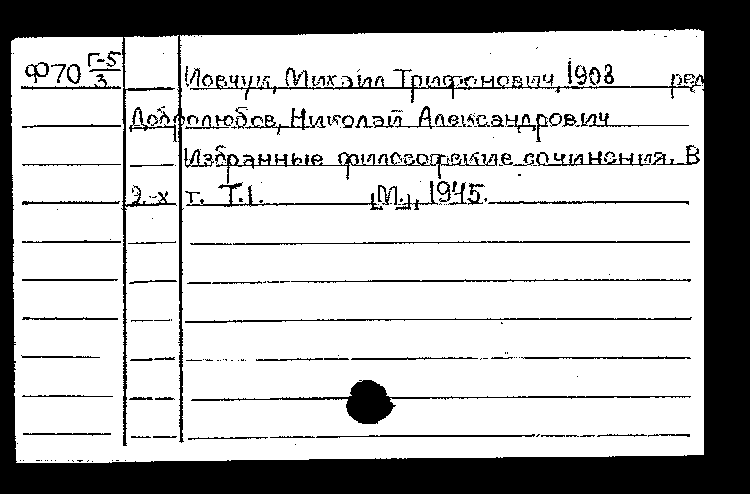 Ф70 Г-5/3 Иовчук, Михаил Трифонович, 1908 ред
Добролюбов, Николай Александрович
Избранные философские сочинения. В
2-х т. Т.1. [М.], 1945.